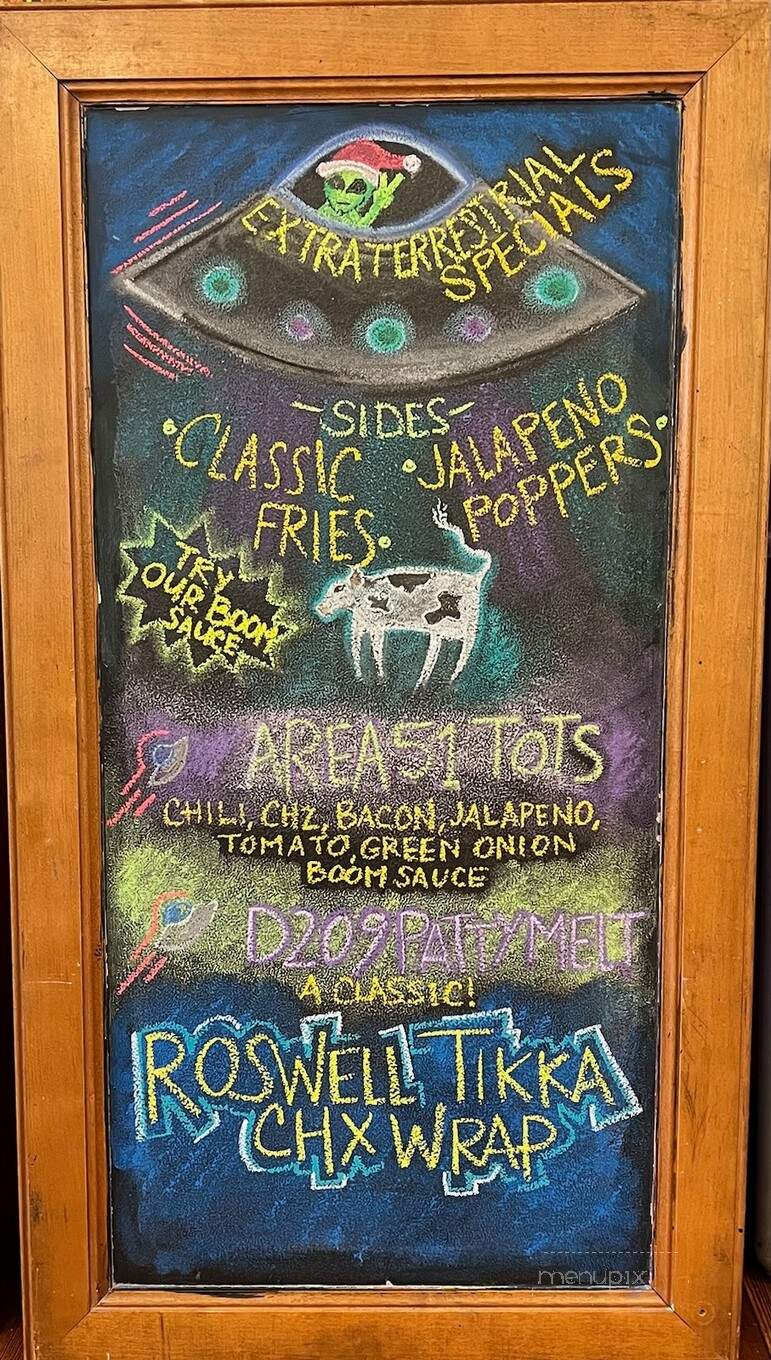 EXTRATERRESTRIAL
SPECIALS
-SIDES-
·CLASSIC
FRIES·
·JALAPENO
POPPERS·
TRY
OUR BOOM
SAUCE
AREA 51 TOTS
CHILI, CHZ, BACON, JALAPENO,
TOMATO, GREEN ONION
BOOM SAUCE
D209 PATTY MELT
A CLASSIC!
ROSWELL TIKKA
CHX WRAP
menupix